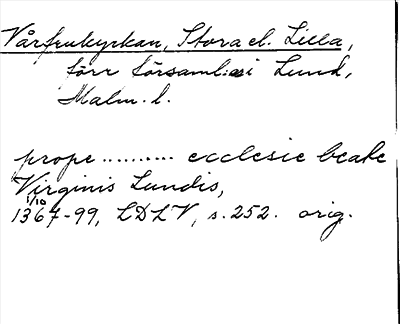 Vårfrukyrkan, Stora el. Lilla,
förr församl:ar i Lund,
Malm. l.
prope .......... ecclesie beate
Virginis Lundis,
1/10
1367-99, LDLV, s. 252. orig.